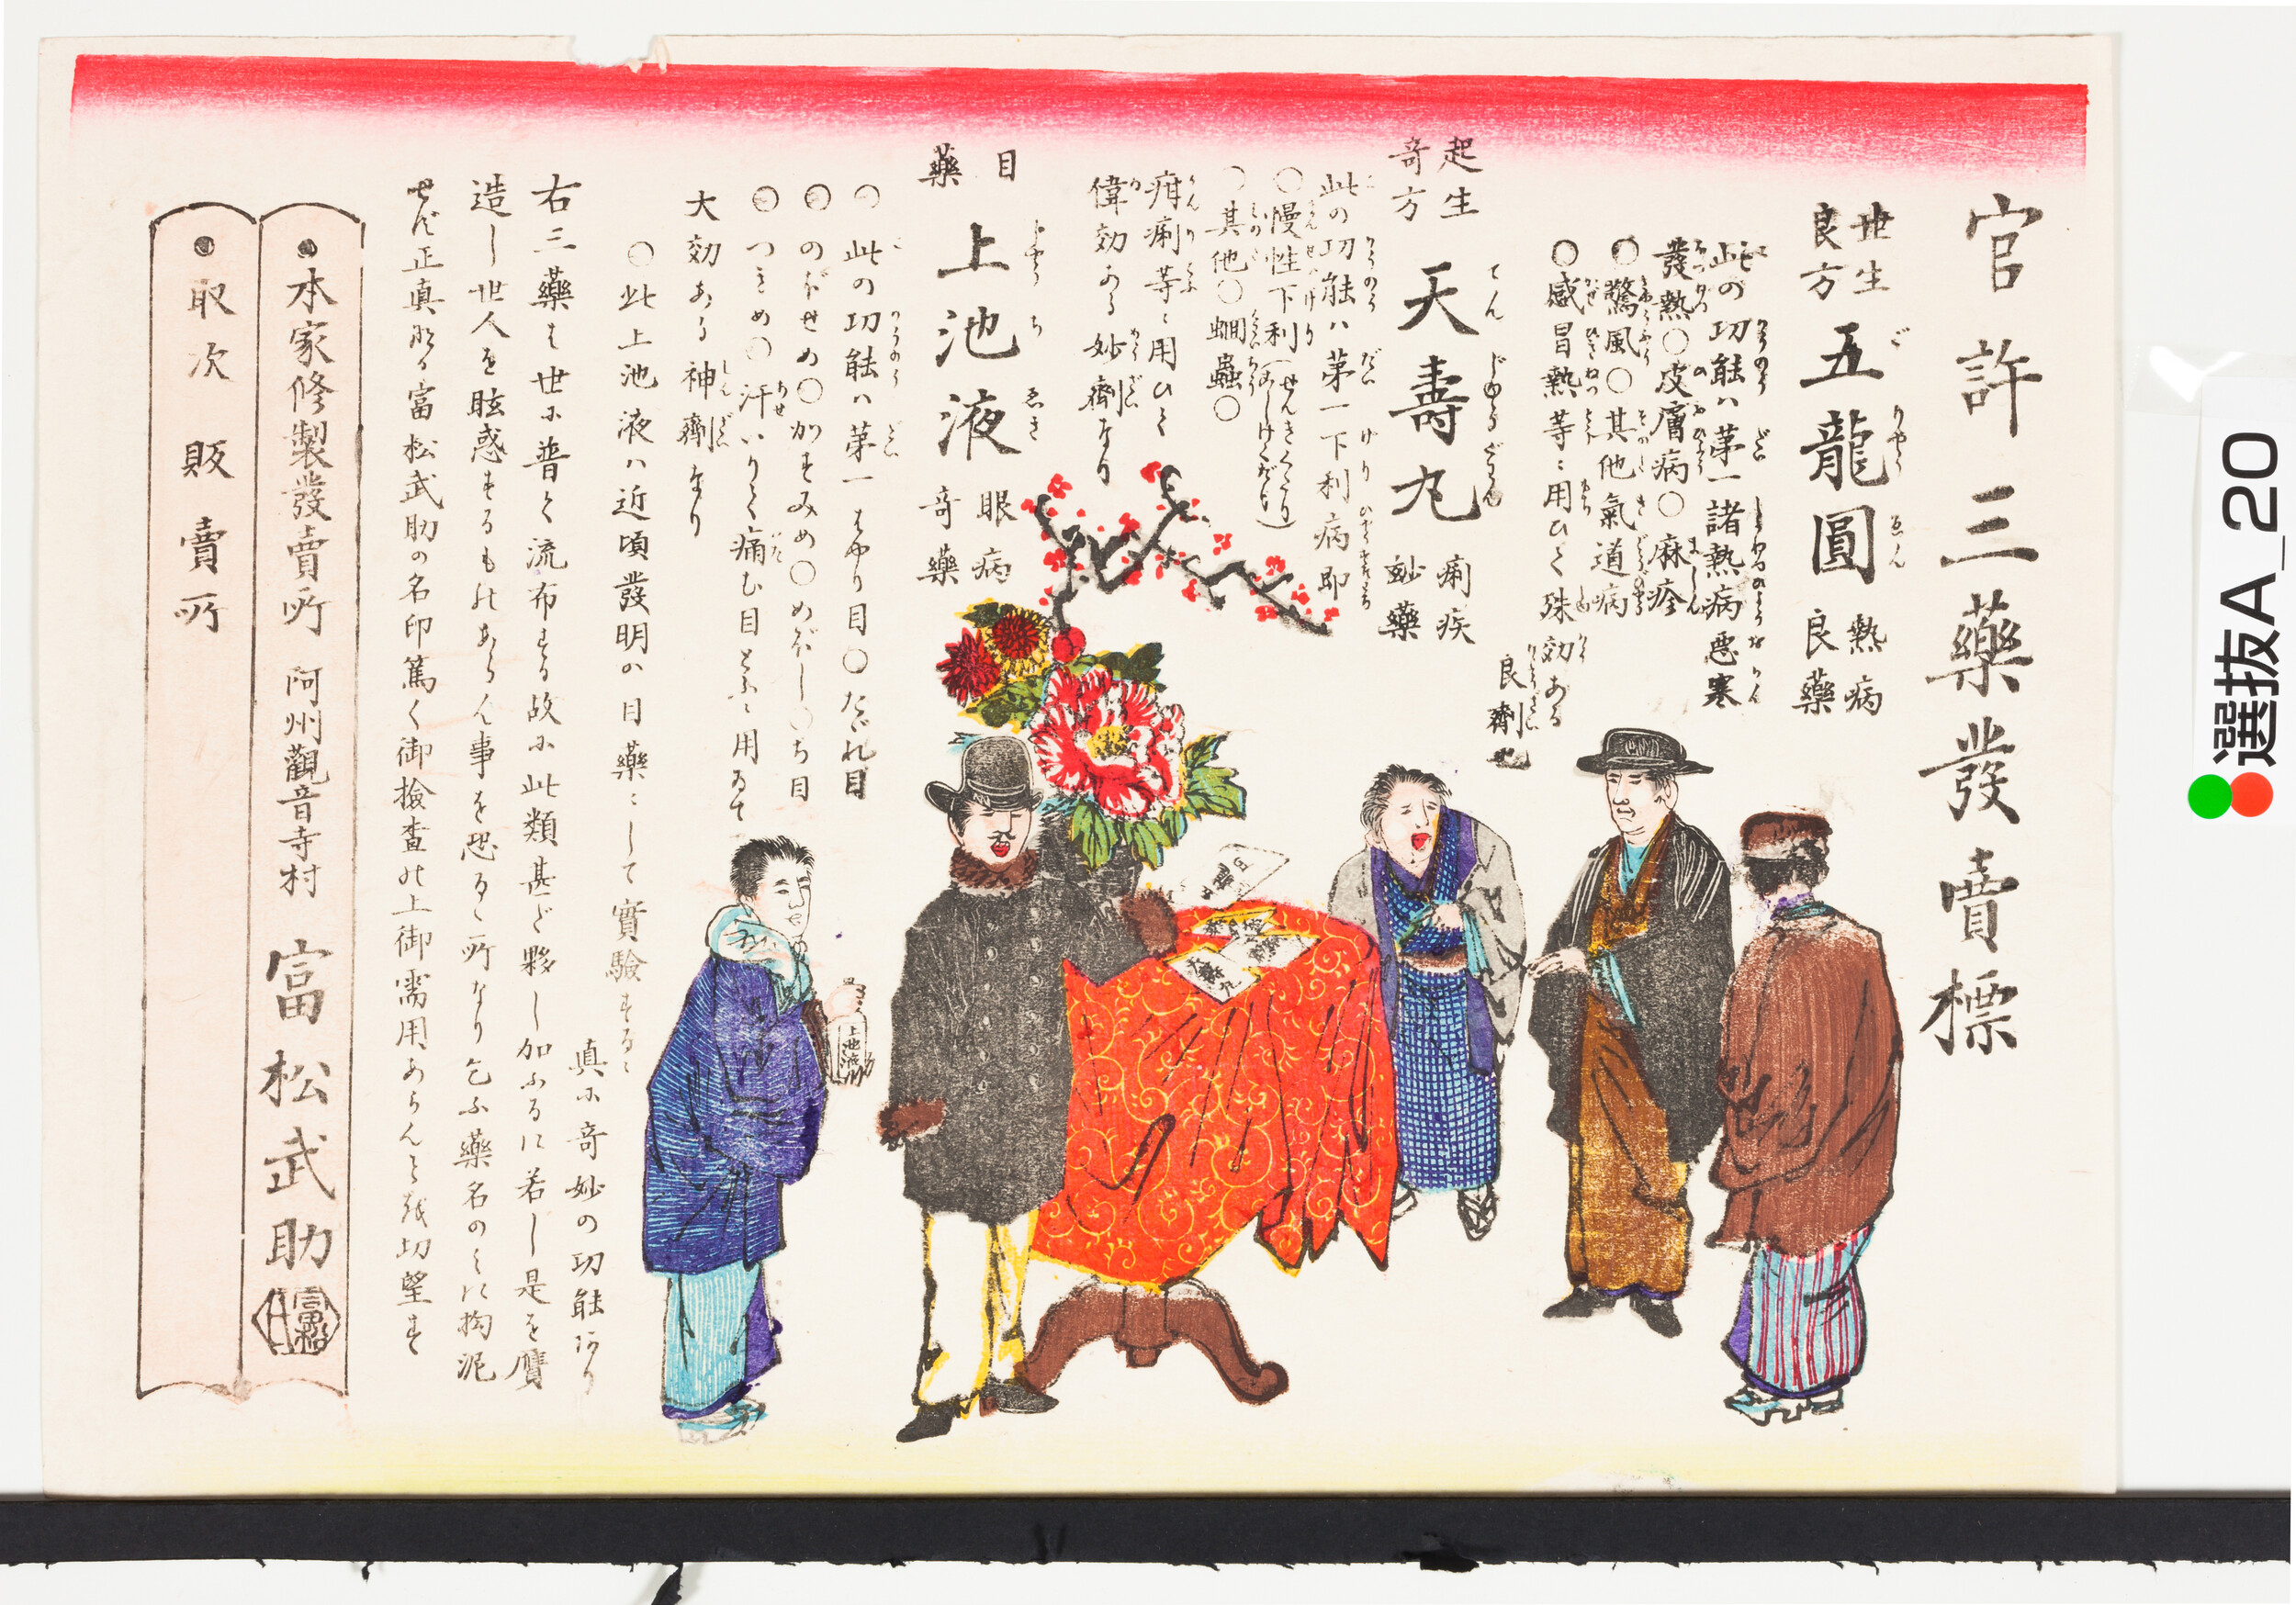 官許三藥發賣標
世生良方
五龍圓
ご りやう ゑん
熱病良藥
此の功能ハ苐一諸熱病悪寒
發熱○皮膚病○麻疹
○驚風○其他氣道病
○感冒熱等ニ用ひて殊効ある
良劑也
起生奇方
天壽丸
てん じゆ ぐわん
痢疾妙藥
此の功能ハ苐一下利病即
○慢性下利
○其他○蛔蟲○
疳痢等ニ用ひて
偉効ある妙劑なり
目藥
上池液
じやう ち ゑき
眼病奇藥
○此の功能ハ苐一はやり目○たゞれ目
○のぼせめ○かすみめ○めぼし○ち目
○つきめ○汗いりて痛む目とふニ用ゐて
大効ある神劑なり
○此上池液ハ近頃發明の目藥ニして實驗するニ
真に奇妙の功能あり
右三藥は世に普く流布する故に此類甚ど夥し加ふるに若し是を贋
造し世人を眩惑するものあらん事を恐るゝ所なり乞ふ藥名のみに拘泥
せず正真なる富松武助の名印篤く御撿査の上御需用あらんことを切望す
●本家修製發賣所 阿州觀音寺村 富松武助
●取次販賣所
上池液
天壽丸
選抜A_20